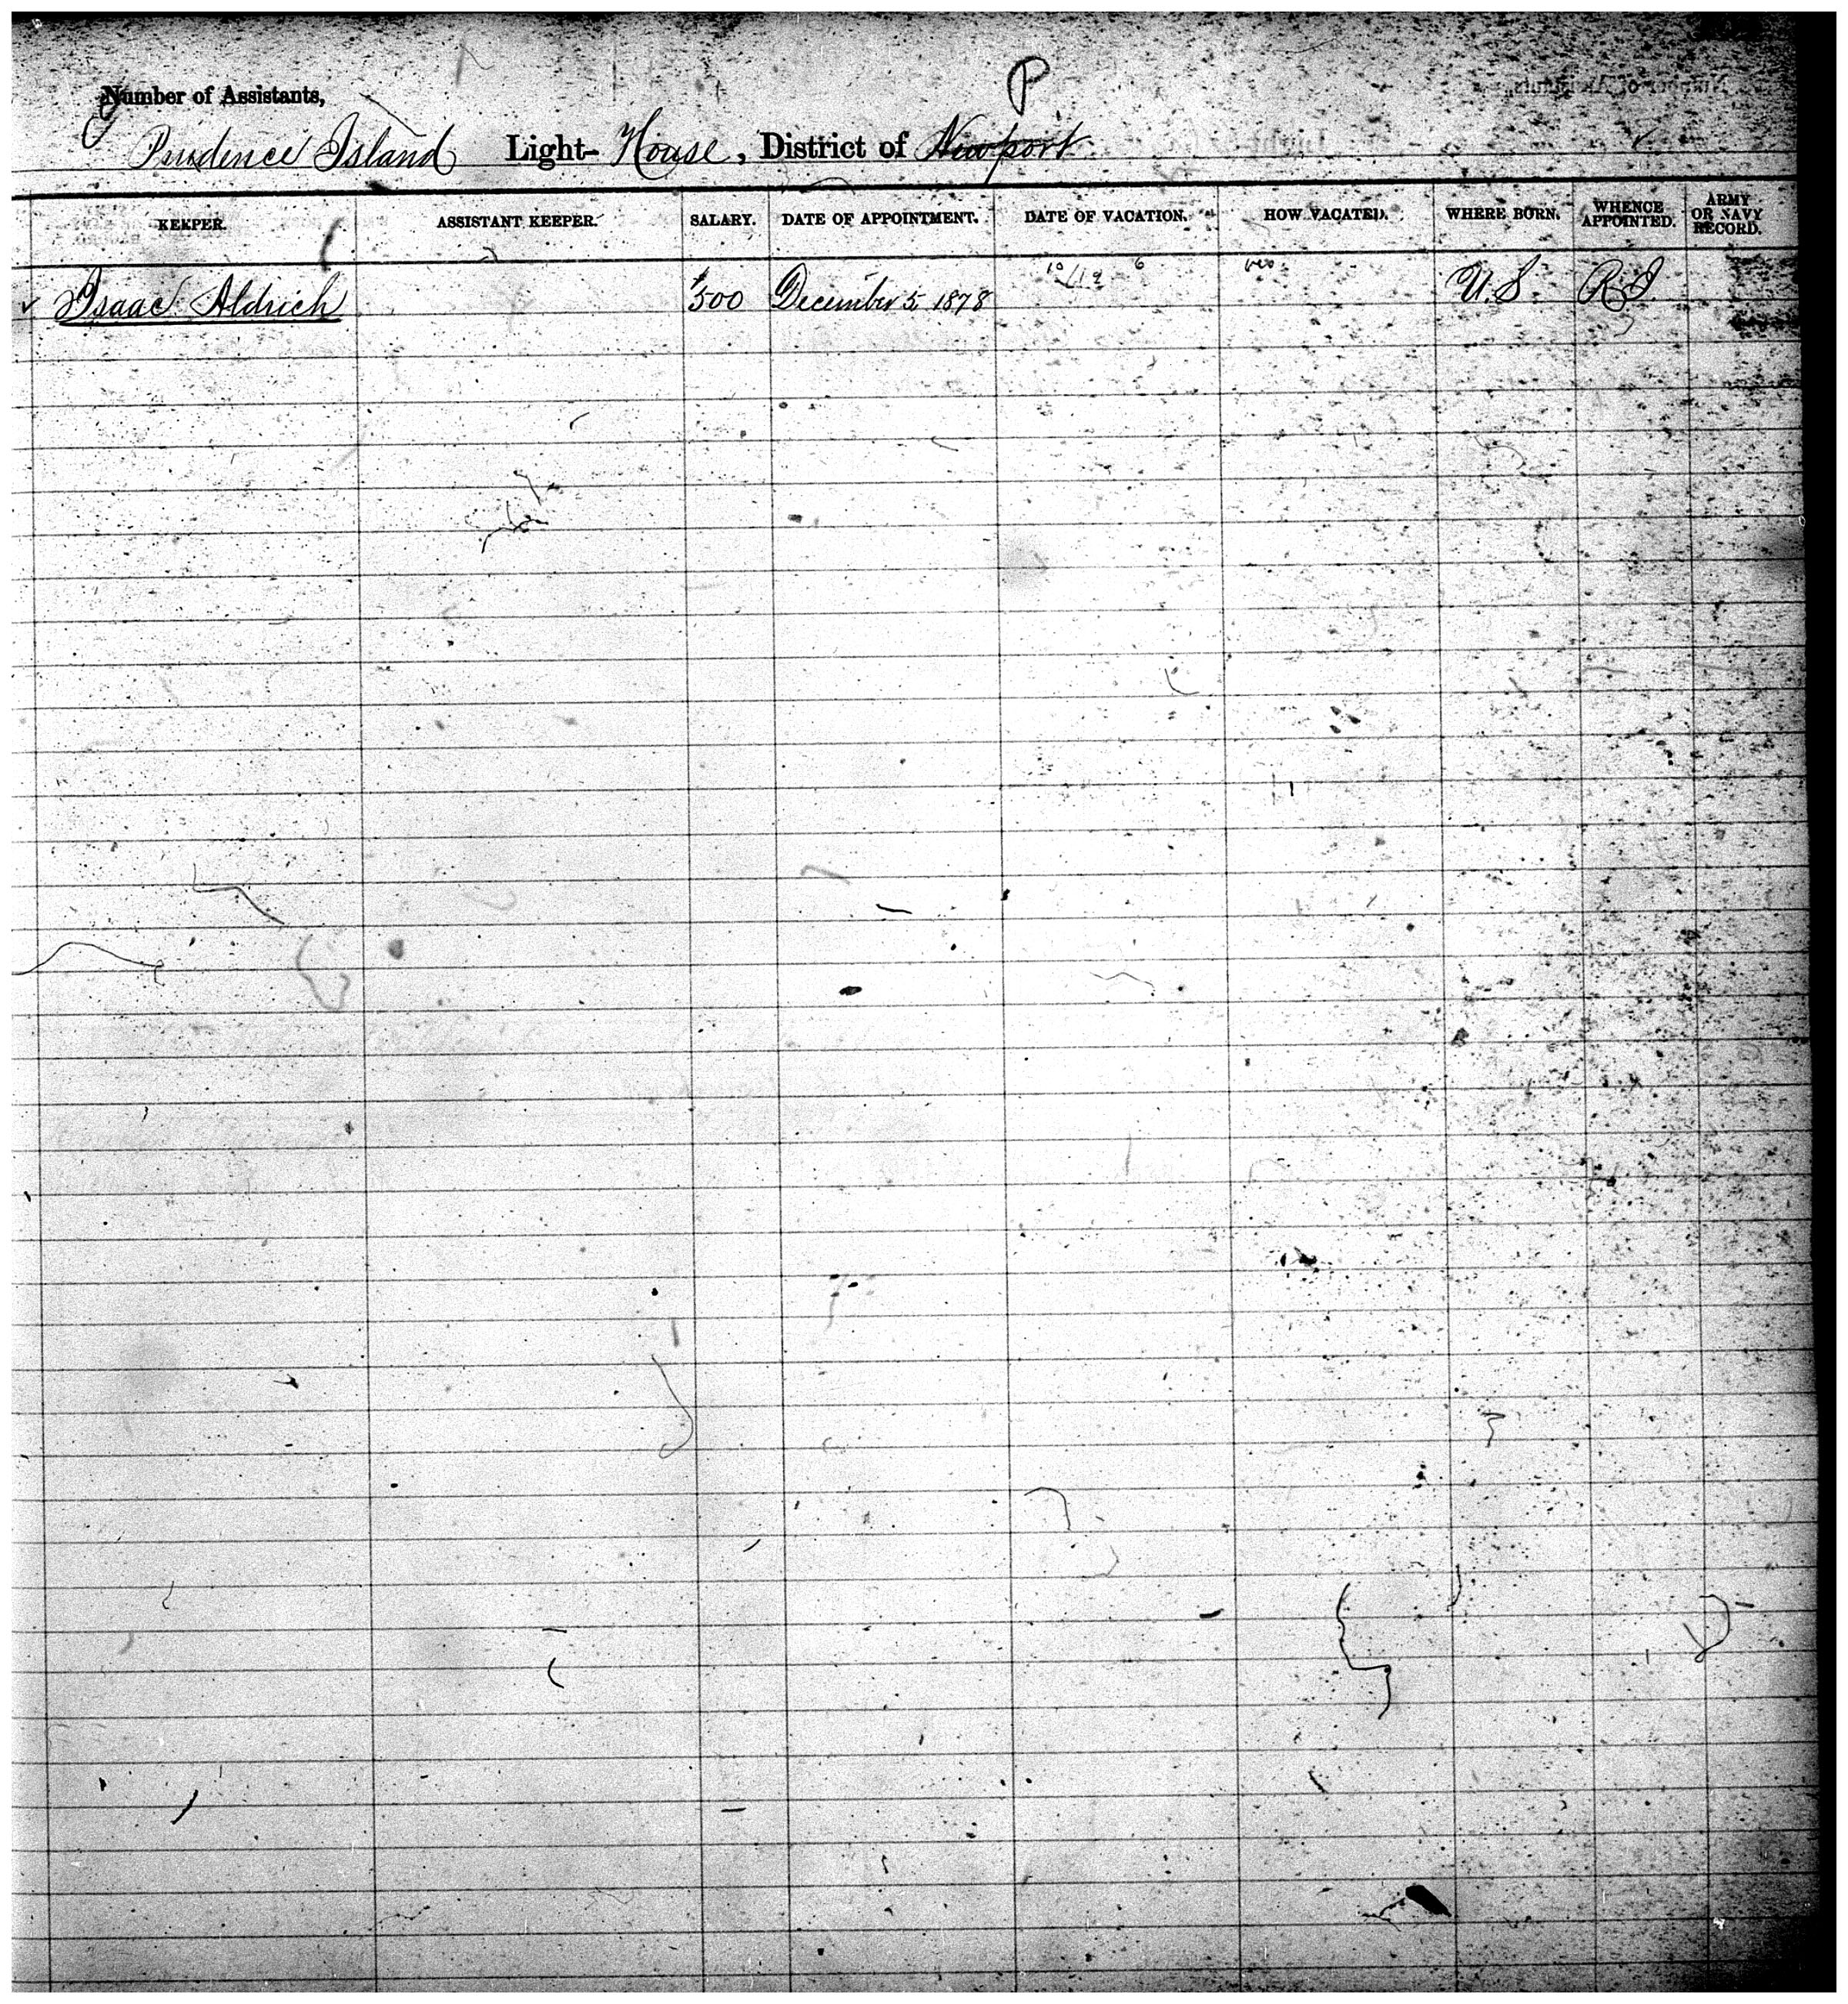 P
Number of Assistants,
Prudence Island Light-House, District of Newport
KEEPER. ASSISTANT KEEPER. SALARY. DATE OF APPOINTMENT. DATE OF VACATION. HOW VACATED. WHERE BORN. WHENCE APPOINTED. ARMY OR NAVY RECORD.
✓ Isaac Aldrich $500 December 5, 1878 U.S. R.I.